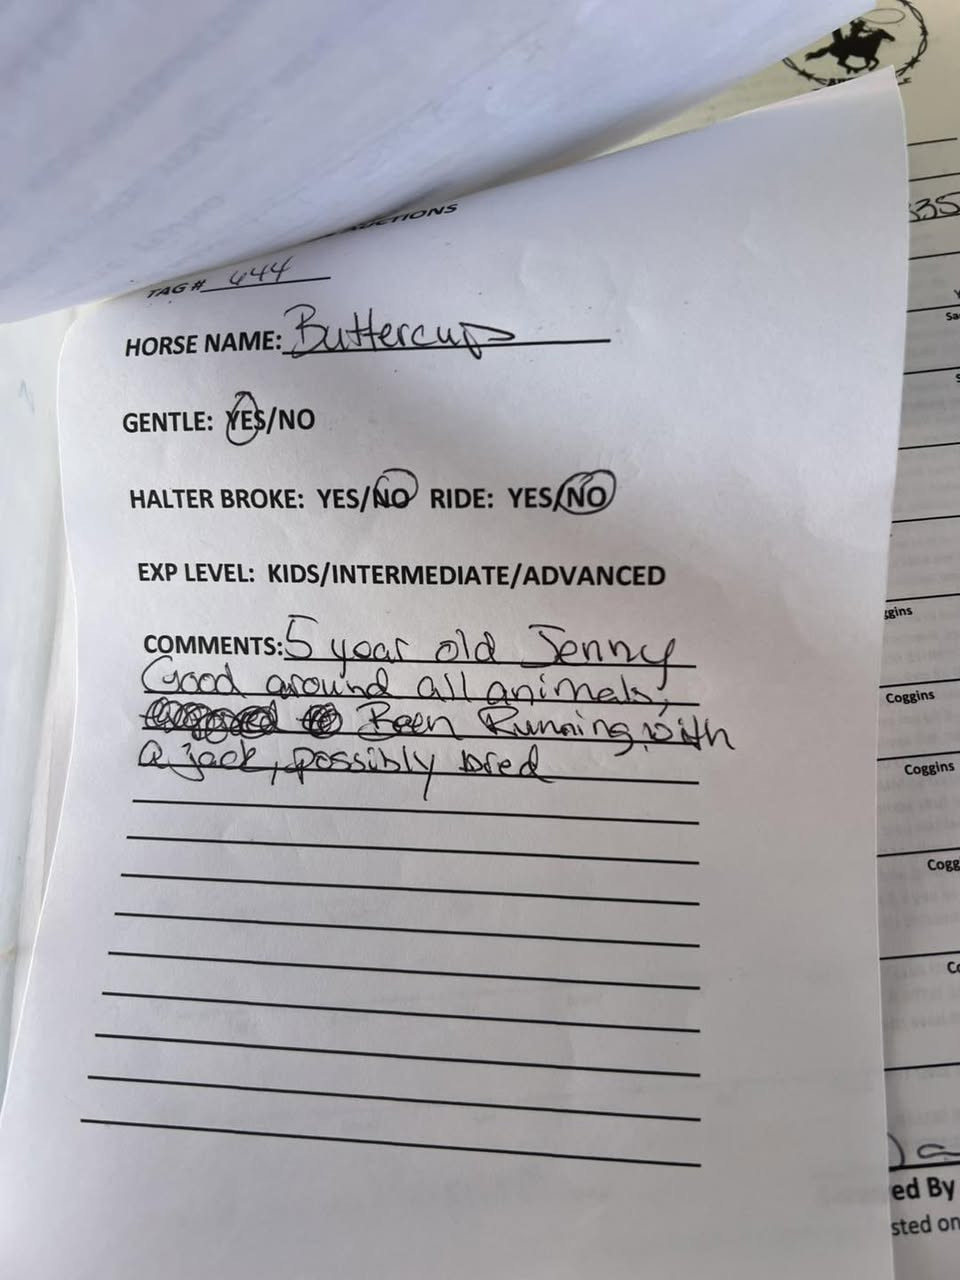 TAG # 644
HORSE NAME: Buttercup
GENTLE: YES/NO
HALTER BROKE: YES/NO RIDE: YES/NO
EXP LEVEL: KIDS/INTERMEDIATE/ADVANCED
COMMENTS: 5 year old Jenny
Good around all animals,
Been Running with
a jack, possibly bred
35
Sa
ggins
Coggins
Coggins
Cogg
Co
ed By
sted on